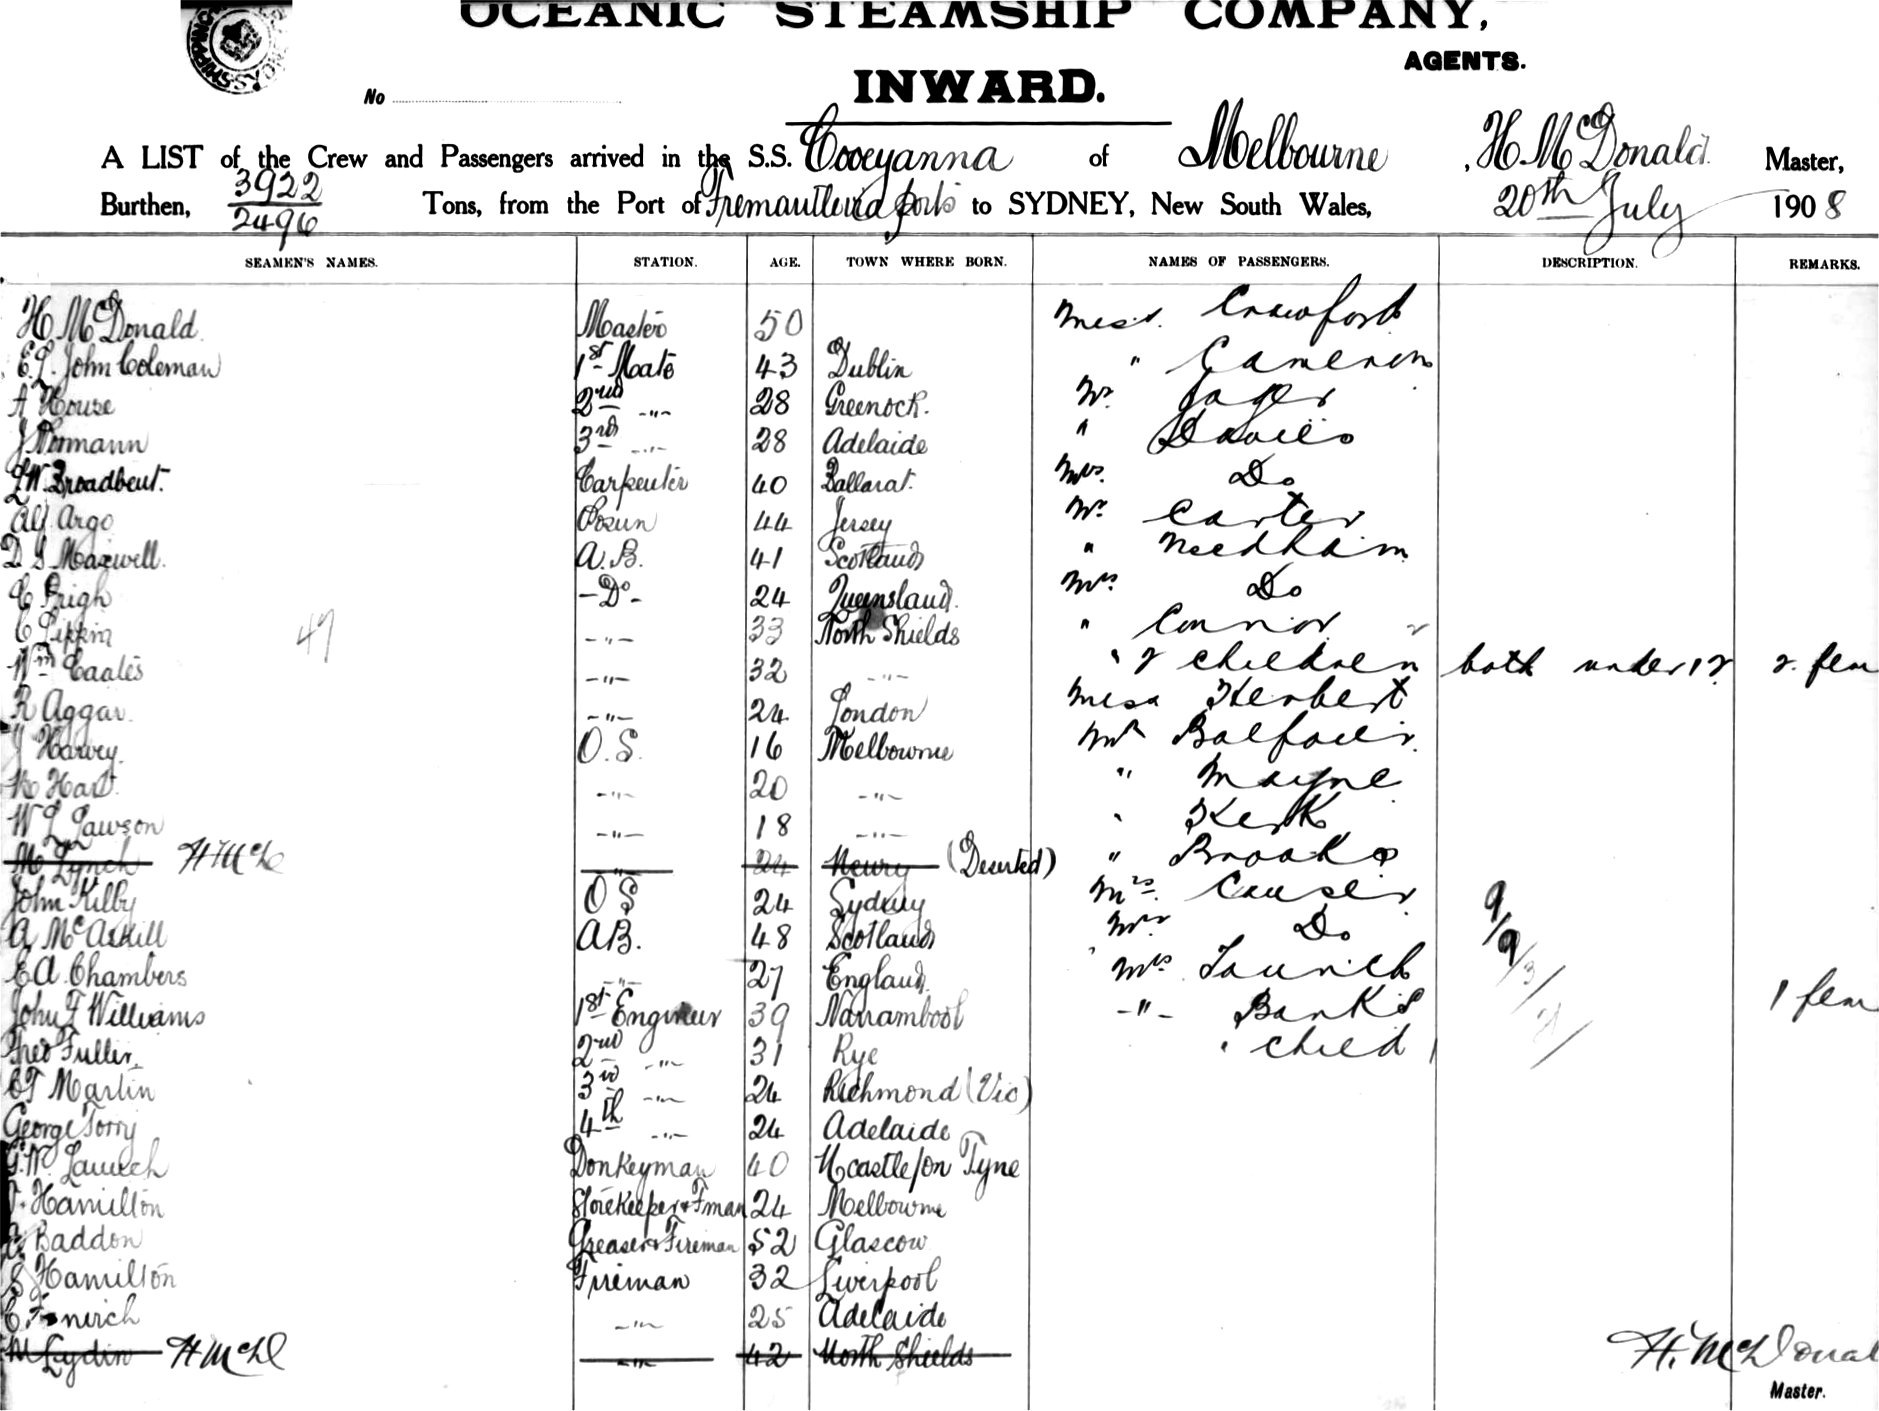 OCEANIC STEAMSHIP COMPANY,
AGENTS.
No
INWARD.
A LIST of the Crew and Passengers arrived in the S.S. Cooeyanna of Melbourne, H McDonald Master,
Burthen, 3922 / 2496 Tons, from the Port of Fremantle via ports to SYDNEY, New South Wales, 20th July 1908
SEAMEN'S NAMES. STATION. AGE. TOWN WHERE BORN. NAMES OF PASSENGERS. DESCRIPTION. REMARKS.
H McDonald Master 50 Miss. Crawford
E.L. John Coleman 1st Mate 43 Dublin " Cameron
A House 2nd -"- 28 Greenock. Mr. Jager
J Normann 3rd -"- 28 Adelaide " Davies
W. Broadbent. Carpenter 40 Ballarat. Mrs. Do
Alf Argo Bosun 44 Jersey Mr. Carter
D S Maxwell. A.B. 41 Scotland " Needham
-Do- 24 Queensland. Mrs. Do
C Pippin -"- 33 North Shields " Connor
47
Wm Coates -"- 32 -"- " 2 children both under 12 2 fem
R Aggar. -"- 24 London Miss Herbert
J Harvey. O.S. 16 Melbourne Mr Balfour
Hart -"- 20 -"- " Mayne
W L Lawson -"- 18 -"- " Kerk
M Lynch H McD -"- 24 Newry (Deserted) " Brooks
John Kilby O S 24 Sydney Mrs. Causer
A McAskill AB. 48 Scotland Mr Do
E A Chambers -"- 27 England. Mrs Taunich
John F Williams 1st Engineer 39 Narrambool -"- Banks 1 fem
Fred Fuller. 2nd -"- 31 Rye " child 1
9/9/3/2/
Martin 3rd -"- 24 Richmond (Vic)
George Torry 4th -"- 24 Adelaide
G.W. Launch Donkeyman 40 Ncastle/on Tyne
Hamilton Storekeeper & Fman 24 Melbourne
Baddon Greaser & Fireman 52 Glascow
S Hamilton Fireman 32 Liverpool
C -"- 25 Adelaide
M Lydin H McD -"- 42 North Shields
H. McDonal
Master.